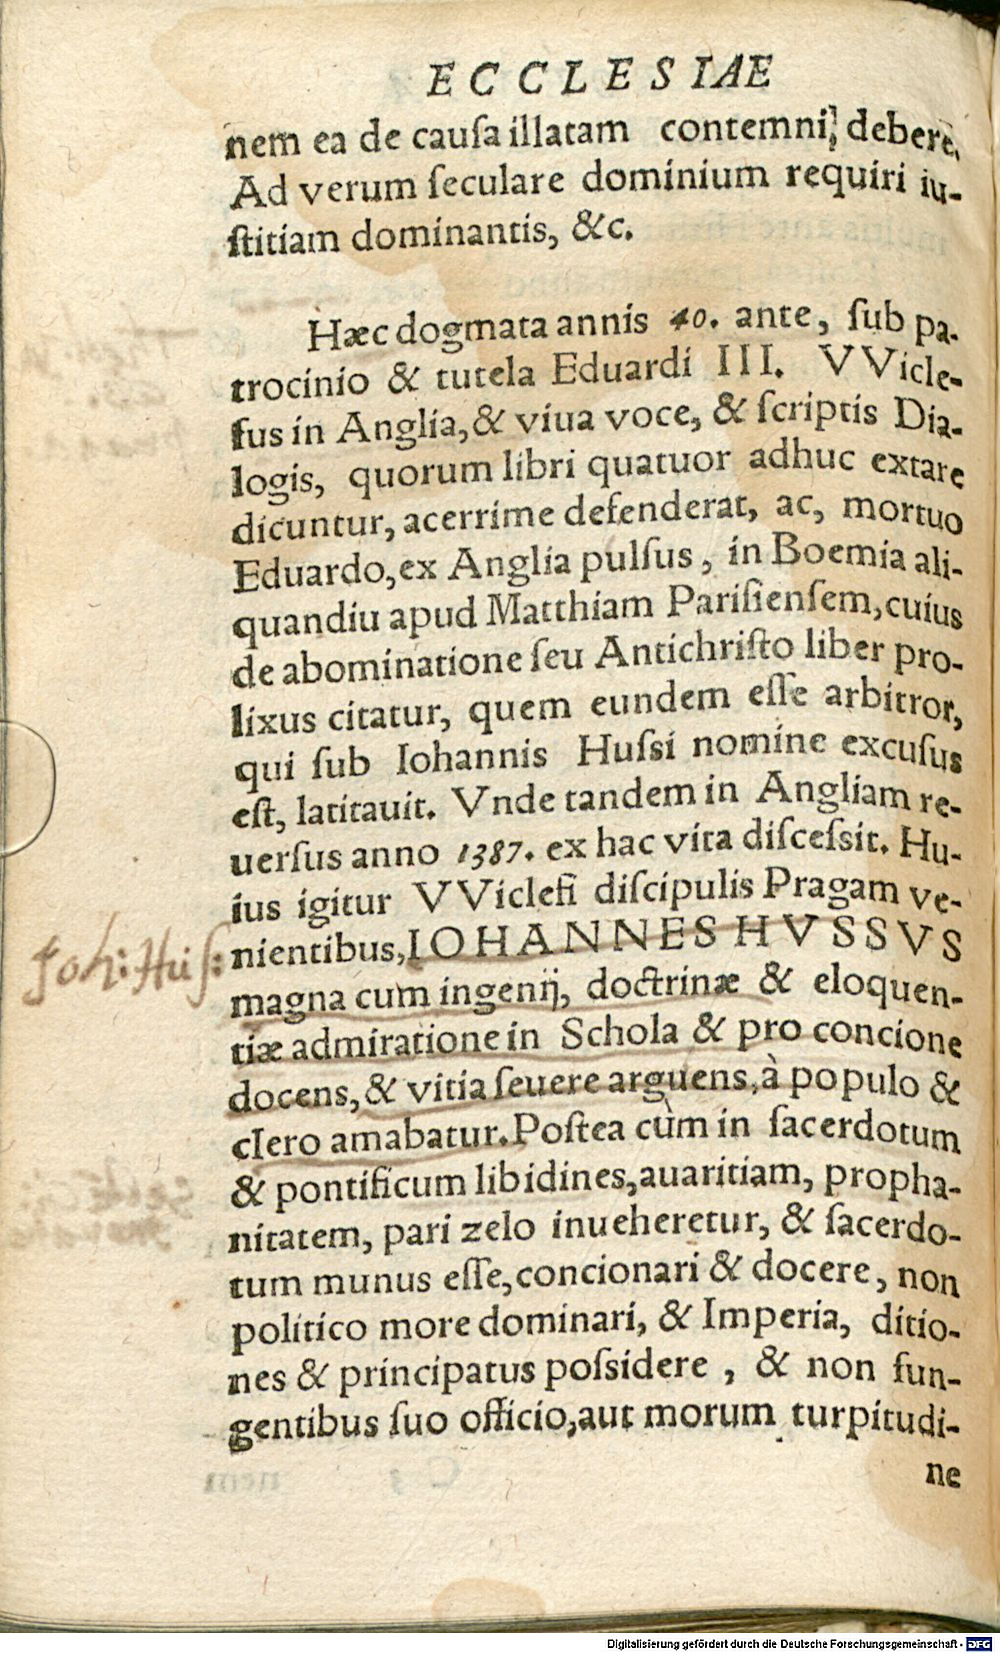 ECCLESIAE
nem ea de cauſa illatam contemni, debere.
Ad verum ſeculare dominium requiri iu-
ſtitiam dominantis, &c.
Hæc dogmata annis 40. ante, ſub pa-
trocinio & tutela Eduardi III. VVicle-
fus in Anglia, & viua voce, & ſcriptis Dia-
logis, quorum libri quatuor adhuc extare
dicuntur, acerrime defenderat, ac, mortuo
Eduardo, ex Anglia pulſus, in Boemia ali-
quandiu apud Matthiam Pariſienſem, cuius
de abominatione ſeu Antichriſto liber pro-
lixus citatur, quem eundem eſſe arbitror,
qui ſub Iohannis Huſsi nomine excuſus
eſt, latitauit. Vnde tandem in Angliam re-
uerſus anno 1387. ex hac vita diſceſsit. Hu-
ius igitur VViclefi diſcipulis Pragam ve-
nientibus, IOHANNES HVSSVS
Joh: Huſ:
magna cum ingenij, doctrinæ & eloquen-
tiæ admiratione in Schola & pro concione
docens, & vitia ſeuere arguens, à populo &
clero amabatur. Poſtea cùm in ſacerdotum
& pontificum libidines, auaritiam, propha-
nitatem, pari zelo inueheretur, & ſacerdo-
tum munus eſſe, concionari & docere, non
politico more dominari, & Imperia, ditio-
nes & principatus poſsidere, & non fun-
gentibus ſuo officio, aut morum turpitudi-
ne
Digitalisierung gefördert durch die Deutsche Forschungsgemeinschaft - DFG